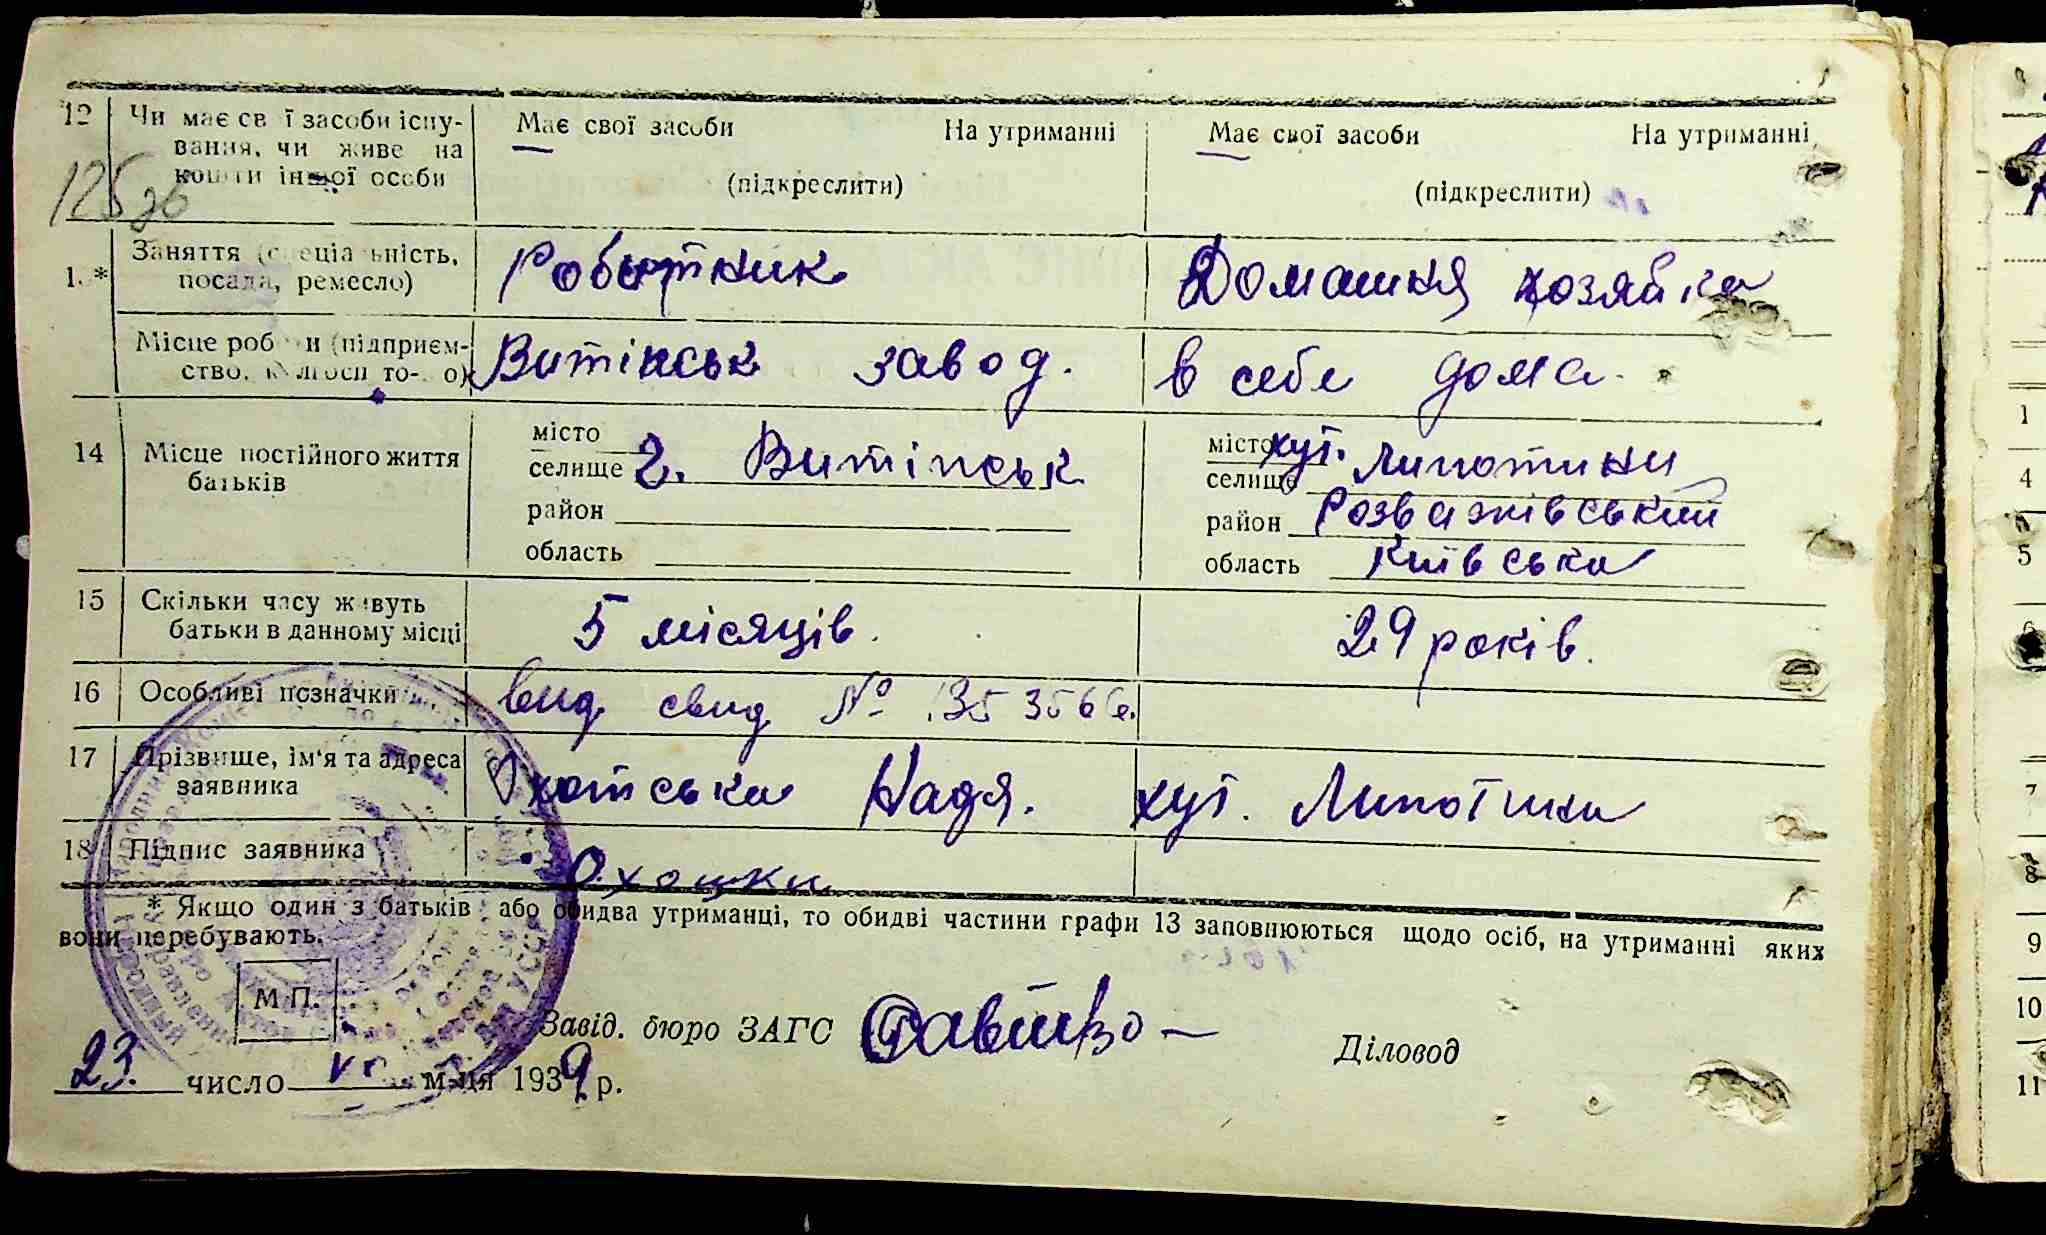 12 Чи має св ї засоби існу-
вання, чи живе на
кошти іншої особи
Має свої засоби На утриманні
(підкреслити)
Має свої засоби На утриманні
(підкреслити)
1 * Заняття (спеціальність,
посада, ремесло)
Роботник
Домашня хозяйка
Місце роботи (підприєм-
ство, колгосп то-що)
Витінськ завод.
в себе дома.
14 Місце постійного життя
батьків
місто
селище г. Витінськ
район
область
місто хут. Липотики
селище
район Розважівський
область Київська
15 Скільки часу живуть
батьки в данному місці
5 місяців.
29 років.
16 Особливі позначки
вид свид №
17 Прізвище, ім'я та адреса
заявника
Охотська Надя. хут. Липотики
18 Підпис заявника
* Якщо один з батьків або обидва утриманці, то обидві частини графи 13 заповнюються щодо осіб, на утриманні яких
вони перебувають.
М П.
Завід. бюро ЗАГС
Діловод
23 число м-ця 1939 р.
1
4
5
6
7
8
9
10
11